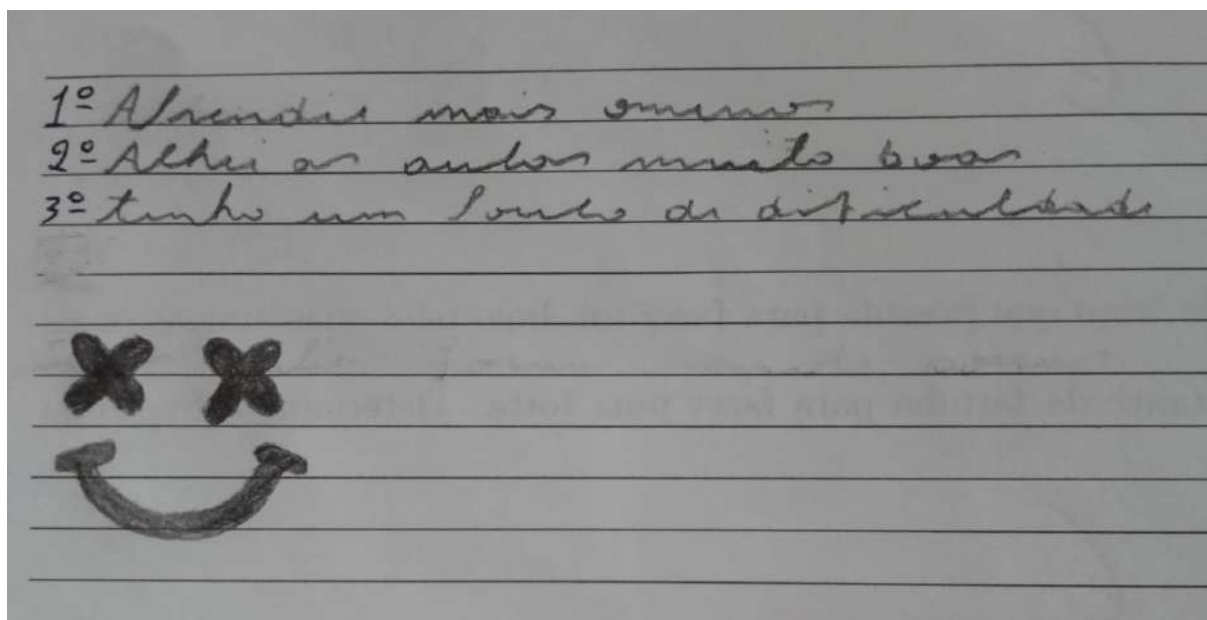 1º Aprendie mais omenos
2º Achei as aulas muito boas
3º tenho um pouco de dificuldade